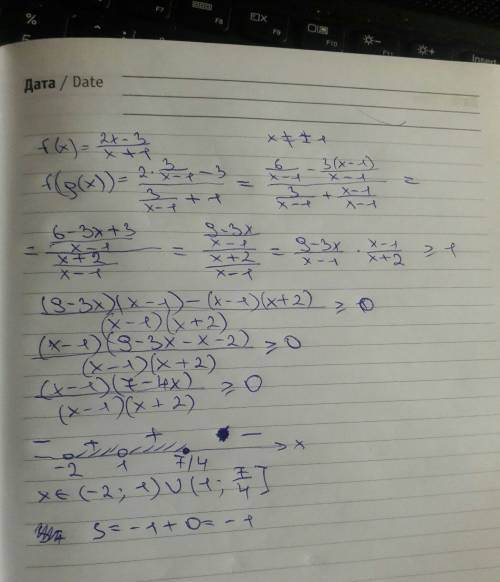 %
F7
F8
F9
F10
F11
F12
Insert
Дата / Date
f(x) = \frac{2x-3}{x+1}   x ≠ ± 1
f(g(x)) = \frac{2 \cdot \frac{3}{x-1} - 3}{\frac{3}{x-1} + 1} = \frac{\frac{6}{x-1} - \frac{3(x-1)}{x-1}}{\frac{3}{x-1} + \frac{x-1}{x-1}} =
= \frac{\frac{6-3x+3}{x-1}}{\frac{x+2}{x-1}} = \frac{\frac{9-3x}{x-1}}{\frac{x+2}{x-1}} = \frac{9-3x}{x-1} \cdot \frac{x-1}{x+2} ≥ 1
\frac{(9-3x)(x-1)-(x-1)(x+2)}{(x-1)(x+2)} ≥ 0
\frac{(x-1)(9-3x-x-2)}{(x-1)(x+2)} ≥ 0
\frac{(x-1)(7-4x)}{(x-1)(x+2)} ≥ 0
− + + − x
-2 1 7/4
x ∈ (-2; 1) ∪ (1; \frac{7}{4}]
S = -1 + 0 = -1